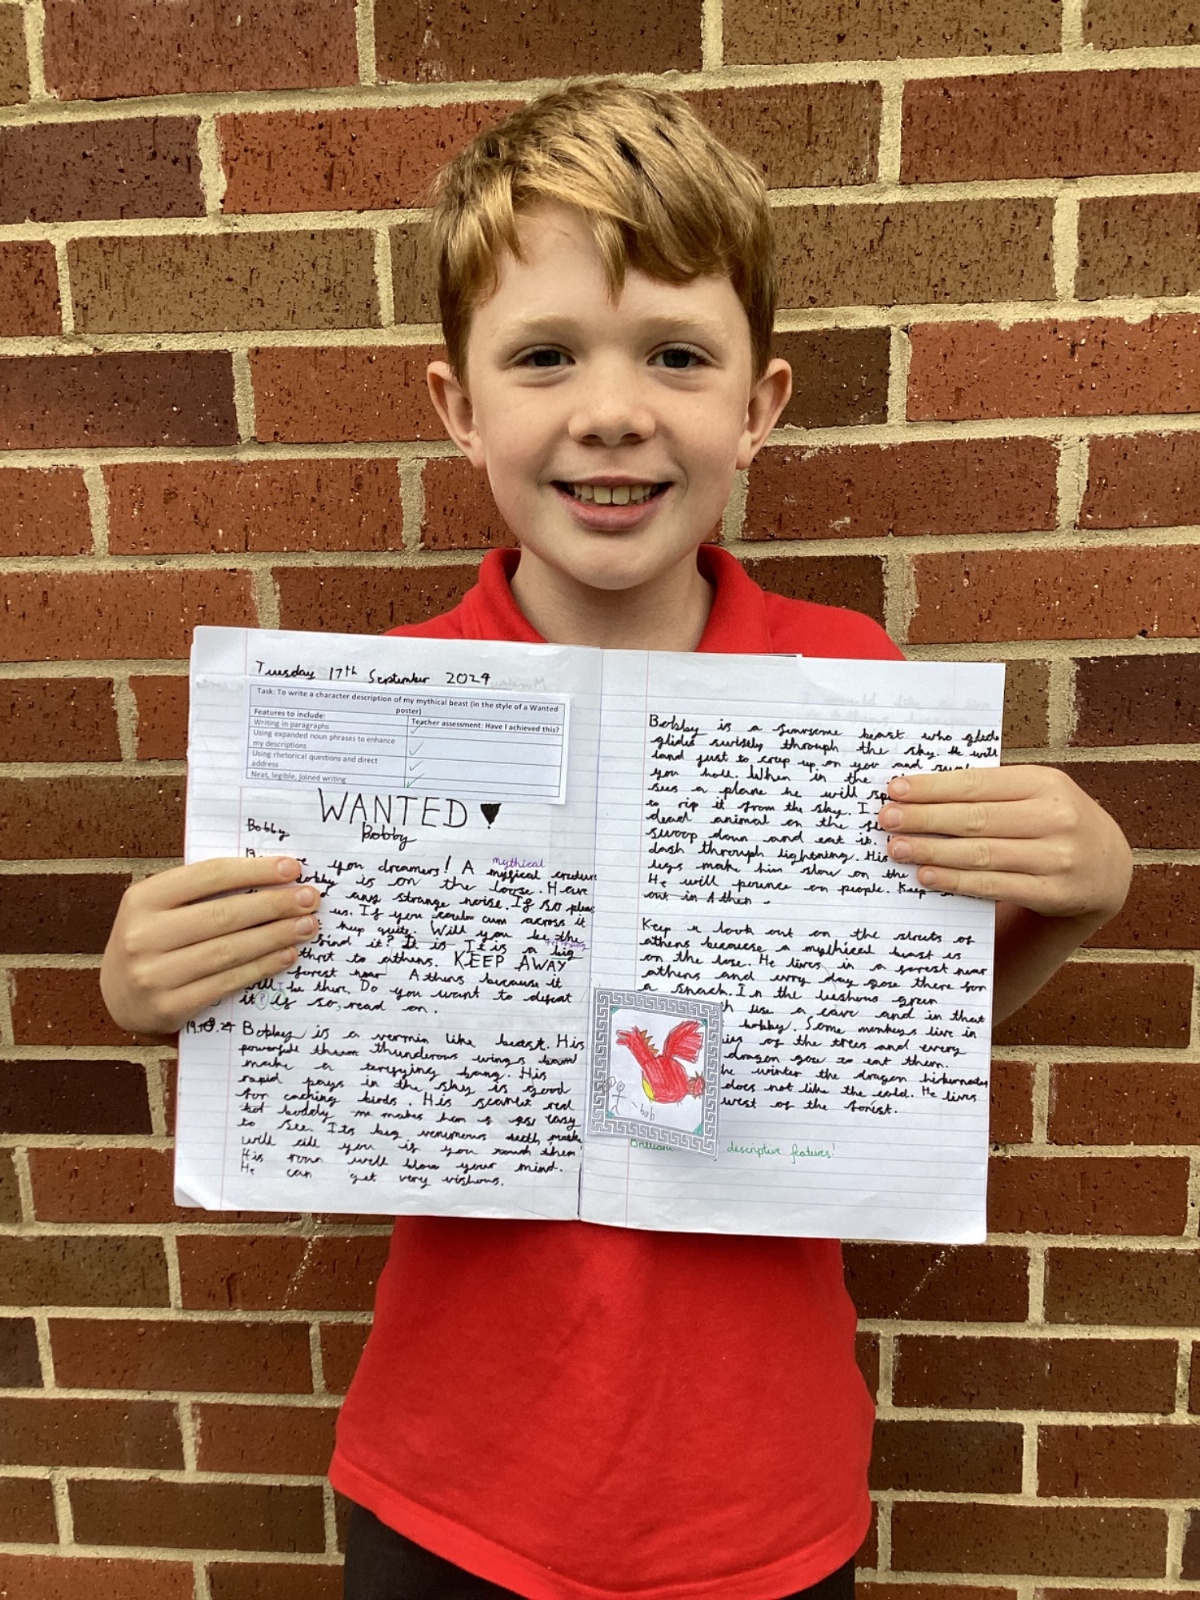 Tuesday 17th September 2024
Task: To write a character description of my mythical beast (in the style of a Wanted
poster)
Features to include:
Teacher assessment: Have I achieved this?
Writing in paragraphs
Using expanded noun phrases to enhance
my descriptions
Using rhetorical questions and direct
address
Neat, legible, joined writing
WANTED
Bobby
Bobby
you dreamers! A mythical mysical creature
is on the loose. Have
any strange noise. If so
us. If you cum across it
kup quite. Will you be the
find it? It is It is a big
thret to athens. KEEP AWAY
forest near Athens because it
will be there. Do you want to defeat
it? If so, read on.
Bobby is a vermin like beast. His
powerful thunderous wings
make a terrifying bang. His
rapid in the sky is good
for caching birds. His scarlet red
makes him easy
to see. Its big venumous
will cill you if you them
His will blow your mind.
He can get very vishous.
Bobby is a fearsome beast who
glides swiftly through the sky. He will
land just to crep up on you and
you hole. When in the
sees a plane he will
to rip it from the sky. I
dead animal on the
swoop down and eat it.
dash through lightning. His
legs make him slow on the
He will pounce on people. Keep
out in Athen
Keep a look out on the streets of
athens because a mythical beast is
on the lose. He lives in a forest near
athens and every day gose there for
a snack. In the green
use a cave and in that
bobby. Some monkeys live in
of the trees and every
dragon gos to eat them.
winter the dragon
does not like the cold. He lives
west of the forist.
bob
Brilliant descriptive features!